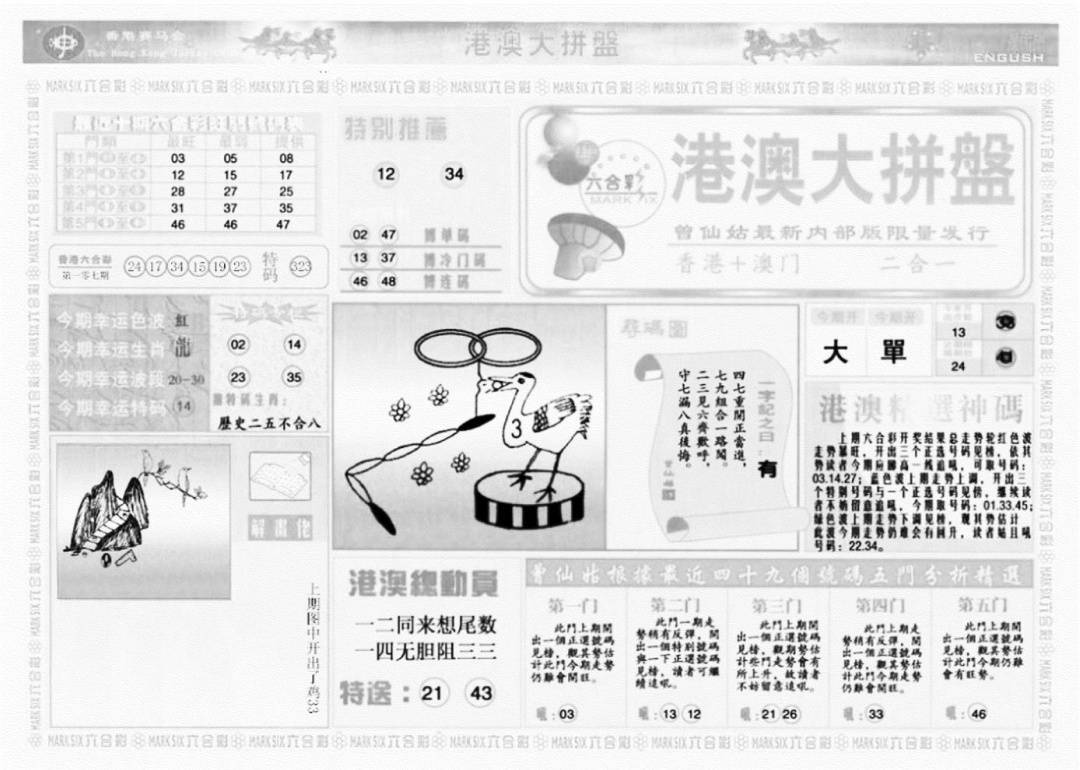 香港赛马会
港澳大拼盤
ENGLISH
門類 最旺 最弱 提供
第1門 至 03 05 08
第2門 至 12 15 17
第3門 至 28 27 25
第4門 至 31 37 35
第5門 至 46 46 47
香港六合彩
第一零七期
24 17 34 15 19 23
特码
323
特别推薦
12 34
02 47 博单码
13 37 博冷门码
46 48 博连码
六合彩
MARK SIX
港澳大拼盤
曾仙姑最新内部版限量发行
香港+澳门 二合一
今期幸运色波 紅
今期幸运生肖 龍
今期幸运波段 20-30
今期幸运特码 14
02 14
23 35
歷史二五不合八
解畫佬
上期图中开出丁鸡33
3
尋碼圖
一字記之曰:有
四七重開正當進,
七九組合一路闖。
二三見六齊歡呼,
守七漏八真後悔。
曾仙姑
今期开 今期开
大 單
13
24
港澳精選神碼
上期六合彩开奖结果总走势轮红色波
走势暴旺,开出三个正选号码见榜,依其
势读者今期应睇高一线追吼,可取号码:
03.14.27;蓝色波上期走势上调,开出三
个特别号码与一个正选号码见榜,继续读
者不妨留意追吼,今期取号码:01.33.45;
绿色波上期走势下调见榜,观其势估计
此波今期走势仍难会有回升,读者姑且吼
号码:22.34。
港澳總動員
一二同来想尾数
一四无胆阻三三
特送:21 43
曾仙姑根據最近四十九個號碼五門分析精選
第一门
此門上期開
出一個正選號碼
見榜,觀其勢估
計此門今期走勢
仍難會開旺。
吼:03
第二门
此門一期走
勢稍有反彈,開
出一個特别號碼
與一下正選號碼
見榜,讀者可繼
續追吼。
吼:13 12
第三门
此門上期開
出一個正選號碼
見榜,觀期勢估
計些門走勢會有
所上升,故讀者
不妨留意追吼。
吼:21 26
第四门
此門上期走
勢稍有反彈,開
出一個正選號碼
見榜,觀其勢估
計此門今期走勢
仍難會開旺。
吼:33
第五门
此門上期開
出一個正選號碼
見榜,觀其勢估
計此門今期仍難
會有旺勢。
吼:46